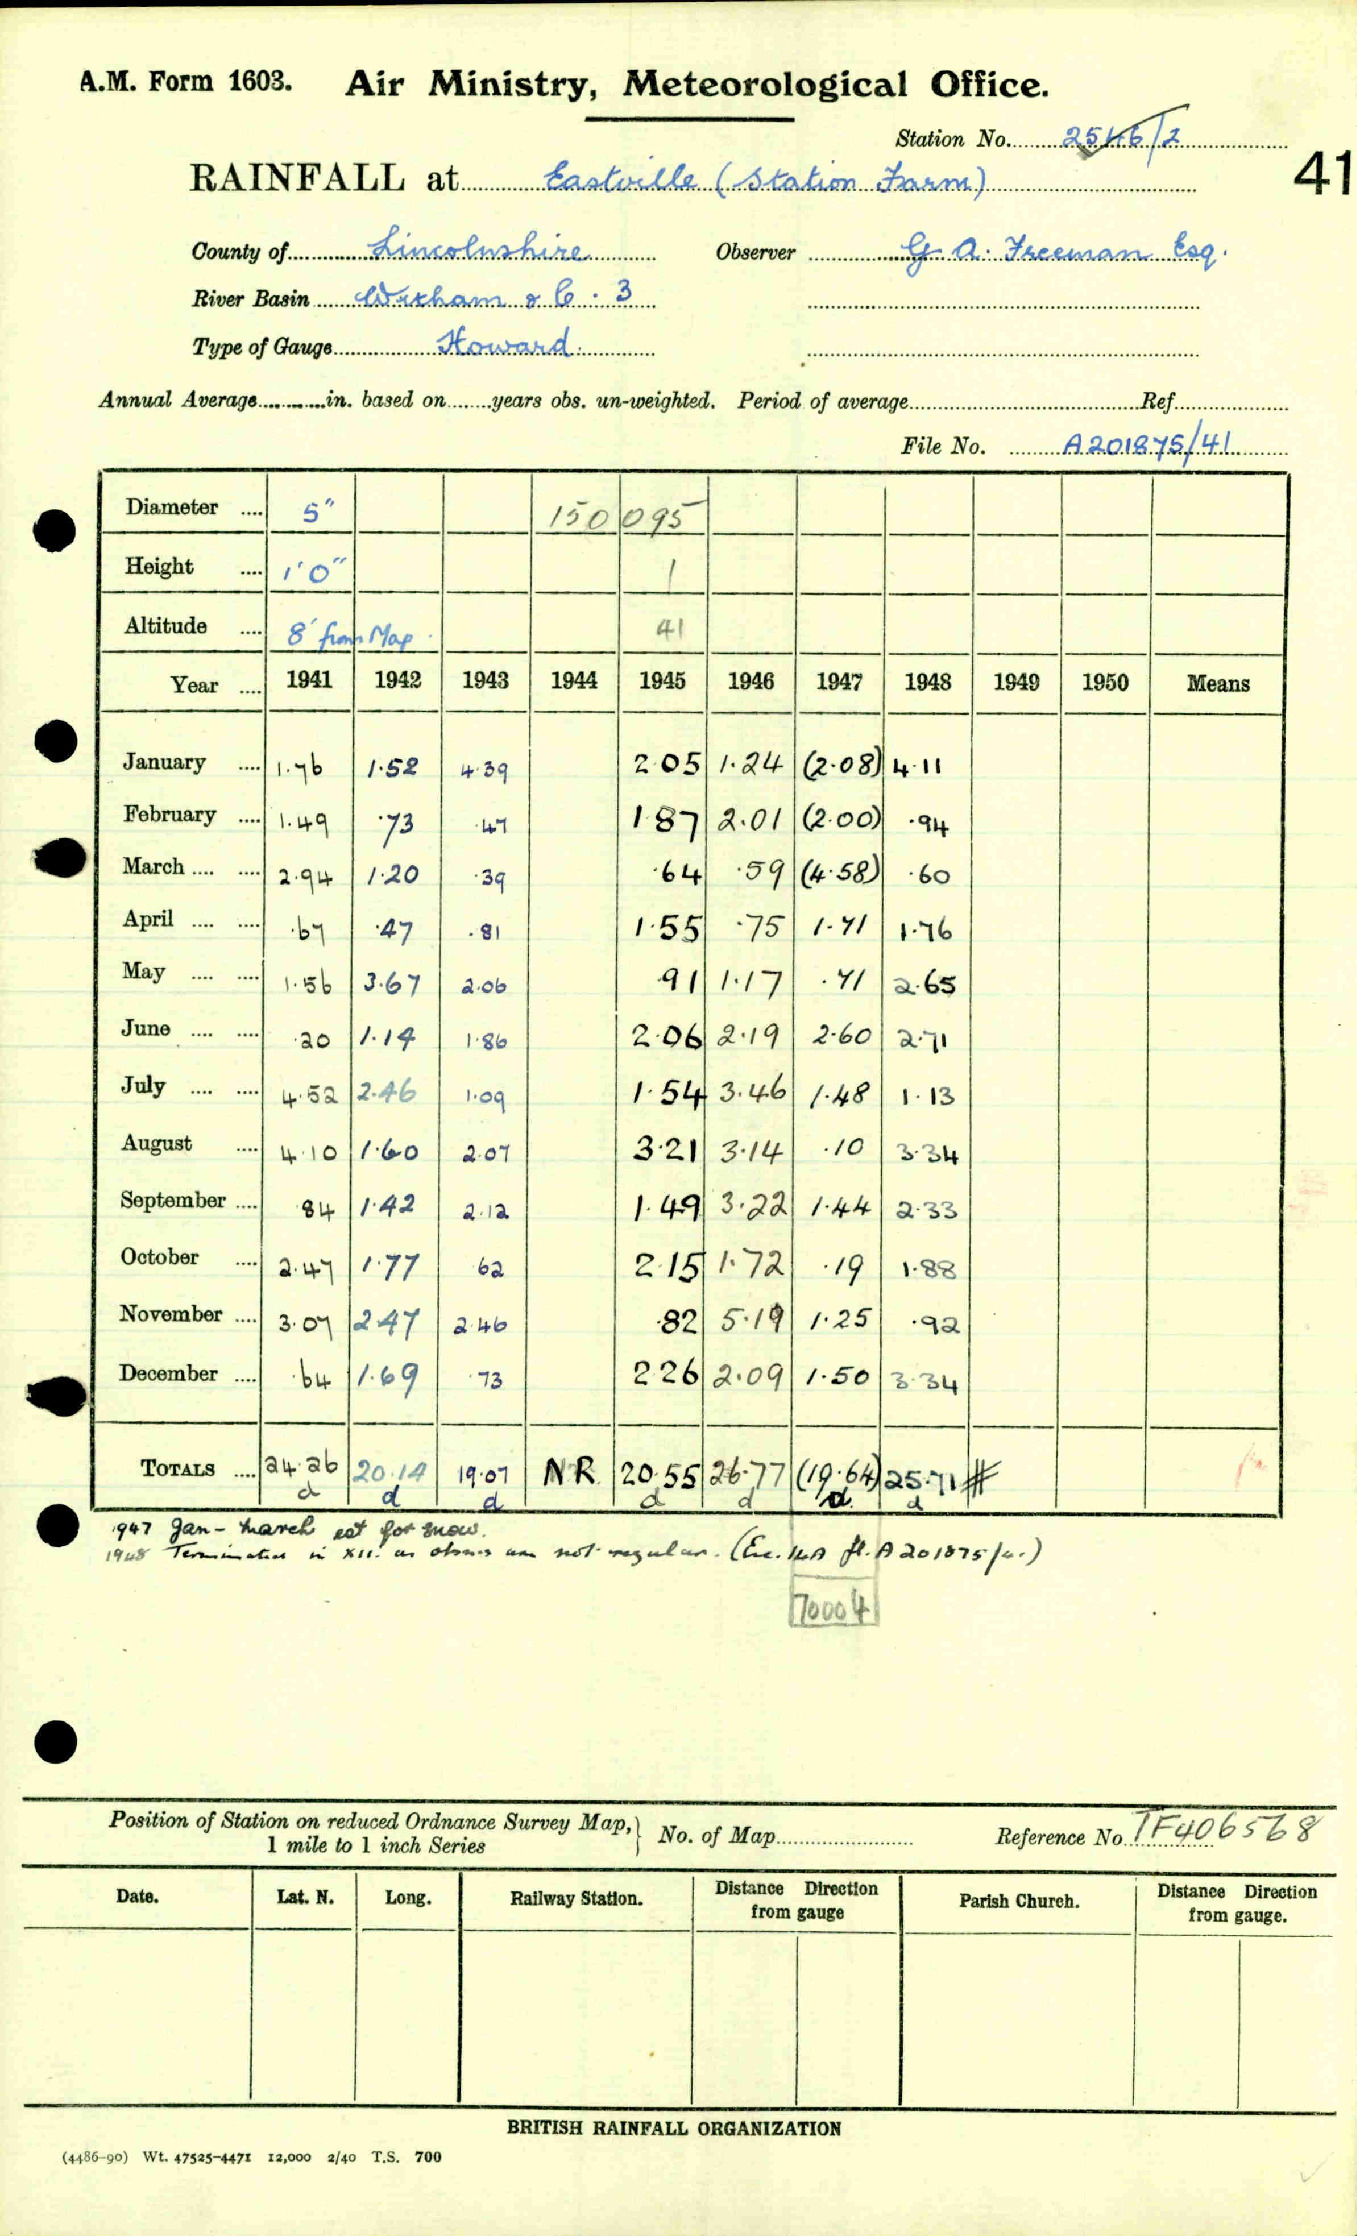 A.M. Form 1603. Air Ministry, Meteorological Office.
Station No. 2546/2
41
RAINFALL at Eastville (Station Farm)
County of Lincolnshire Observer G. A. Freeman Esq.
River Basin Witham & C. 3
Type of Gauge Howard.
Annual Average in. based on years obs. un-weighted. Period of average Ref.
File No. A201875/41
Diameter .... 5" 150095
Height .... 1'0" 1
Altitude .... 8' from Map. 41
Year .... 1941 1942 1943 1944 1945 1946 1947 1948 1949 1950 Means
January .... 1.76 1.52 4.39 2.05 1.24 (2.08) 4.11
February .... 1.49 .73 .47 1.87 2.01 (2.00) .94
March .... .... 2.94 1.20 .39 .64 .59 (4.58) .60
April .... .... .67 .47 .81 1.55 .75 1.71 1.76
May .... .... 1.56 3.67 2.06 .91 1.17 .71 2.65
June .... .... .20 1.14 1.86 2.06 2.19 2.60 2.71
July .... .... 4.52 2.46 1.09 1.54 3.46 1.48 1.13
August .... 4.10 1.60 2.07 3.21 3.14 .10 3.34
September .... .84 1.42 2.12 1.49 3.22 1.44 2.33
October .... 2.47 1.77 .62 2.15 1.72 .19 1.88
November .... 3.07 2.47 2.46 .82 5.19 1.25 .92
December .... .64 1.69 .73 2.26 2.09 1.50 3.34
TOTALS .... 24.26 20.14 19.07 NR 20.55 26.77 (19.64) 25.71 #
d d d d d d d
1947 Jan - March est for snow.
1948 Terminated in XII. as obsns are not regular. (Enc. 14A fl. A201875/41)
70004
Position of Station on reduced Ordnance Survey Map, 1 mile to 1 inch Series } No. of Map Reference No. TF406568
Date. Lat. N. Long. Railway Station. Distance Direction from gauge Parish Church. Distance Direction from gauge.
BRITISH RAINFALL ORGANIZATION
(4486-90) Wt. 47525-4471 12,000 2/40 T.S. 700